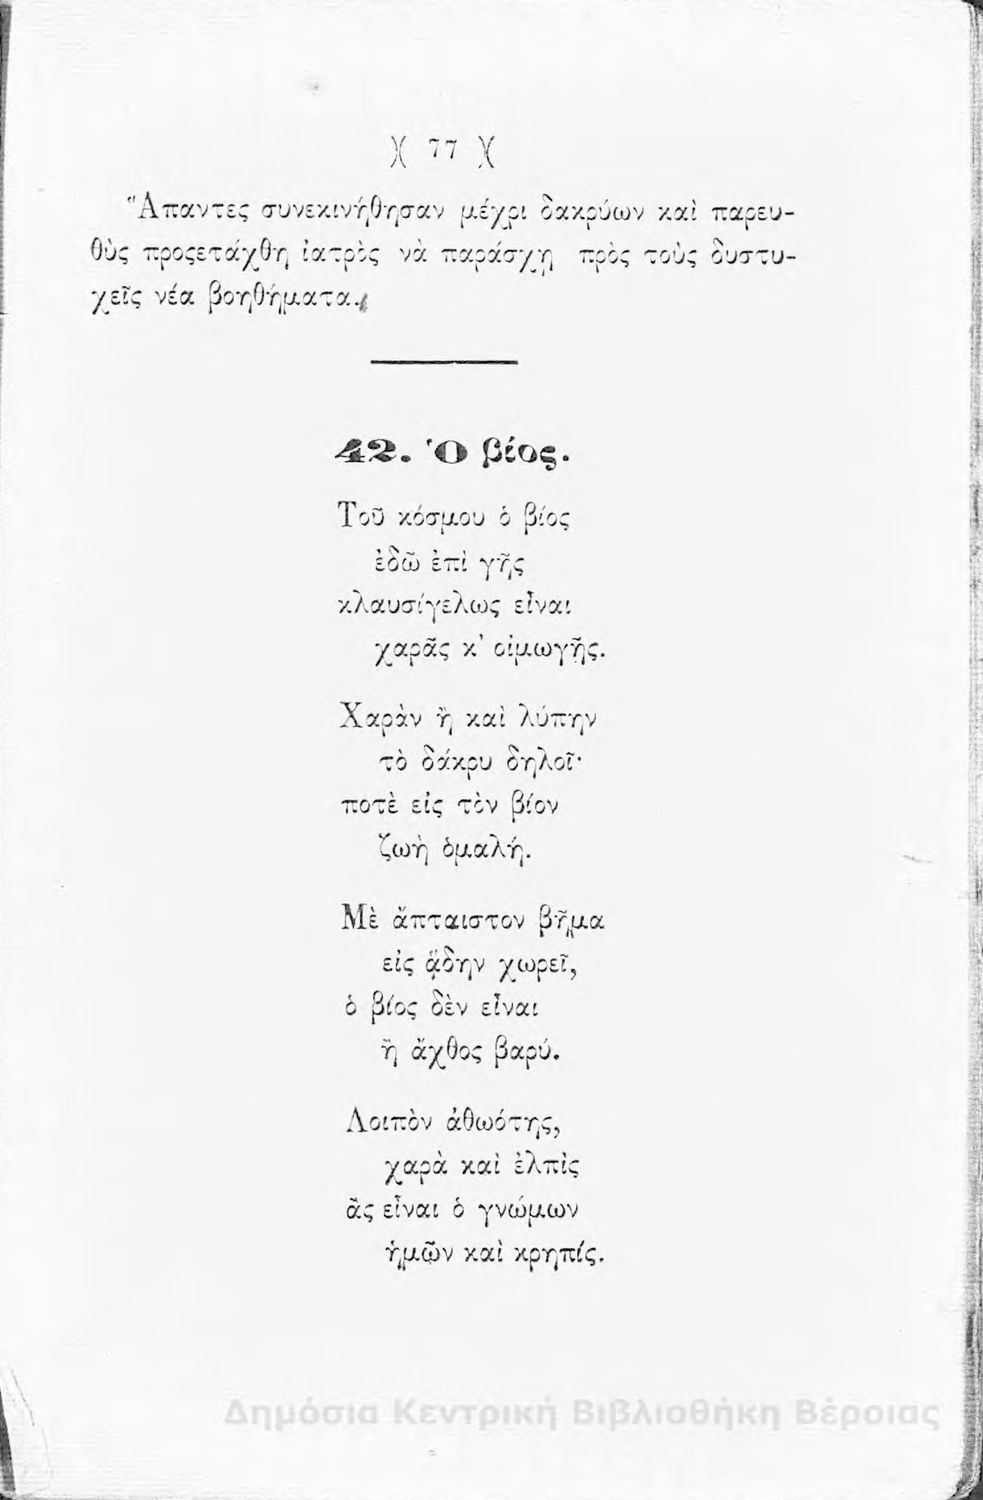 )( 77 )(
Ἅπαντες συνεκινήθησαν μέχρι δακρύων καὶ παρευ-
θὺς προςετάχθη ἰατρὸς νὰ παράσχῃ πρὸς τοὺς δυστυ-
χεῖς νέα βοηθήματα.
42. Ὁ βίος.
Τοῦ κόσμου ὁ βίος
ἐδῶ ἐπὶ γῆς
κλαυσίγελως εἶναι
χαρᾶς κ’ οἰμωγῆς.
Χαρὰν ἢ καὶ λύπην
τὸ δάκρυ δηλοῖ·
ποτὲ εἰς τὸν βίον
ζωὴ ὁμαλή.
Μὲ ἄπταιστον βῆμα
εἰς ᾅδην χωρεῖ,
ὁ βίος δὲν εἶναι
ἢ ἄχθος βαρύ.
Λοιπὸν ἀθωότης,
χαρὰ καὶ ἐλπὶς
ἂς εἶναι ὁ γνώμων
ἡμῶν καὶ κρηπίς.
Δημόσια Κεντρική Βιβλιοθήκη Βέροιας